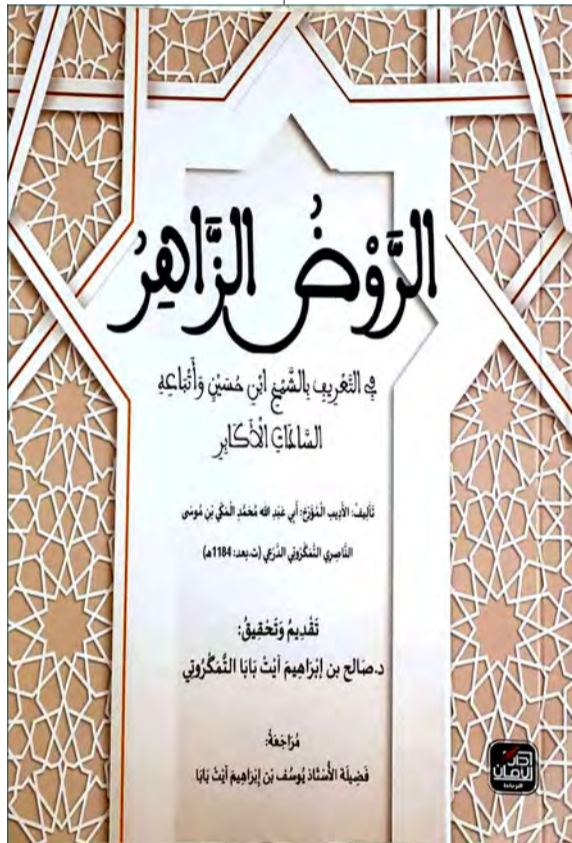 الرَّوْضُ الزَّاهِرُ
فِي التَّعْرِيفِ بِالشَّيْخِ ابْنِ حُسَيْنٍ وَأَتْبَاعِهِ
السَّادَاتِ الْأَكَابِرِ
تَأْلِيفُ: الأَدِيبِ الْمُؤَرِّخِ: أَبِي عَبْدِ اللهِ مُحَمَّدِ الْمَكِّي بْنِ مُوسَى
النَّاصِرِي التَّمْكَرُوتِي الدَّرْعِي (ت.بعد: 1184هـ)
تَقْدِيمُ وَتَحْقِيقُ:
د.صَالح بن إِبْرَاهِيمَ آيْتْ بَابَا التَّمْكْرُوتِي
مُرَاجَعَةُ:
فَضِيلَة الأُسْتَاذ يُوسُف بْن إِبْرَاهِيمَ آيْتْ بَابَا
دار
الأمان
الرباط